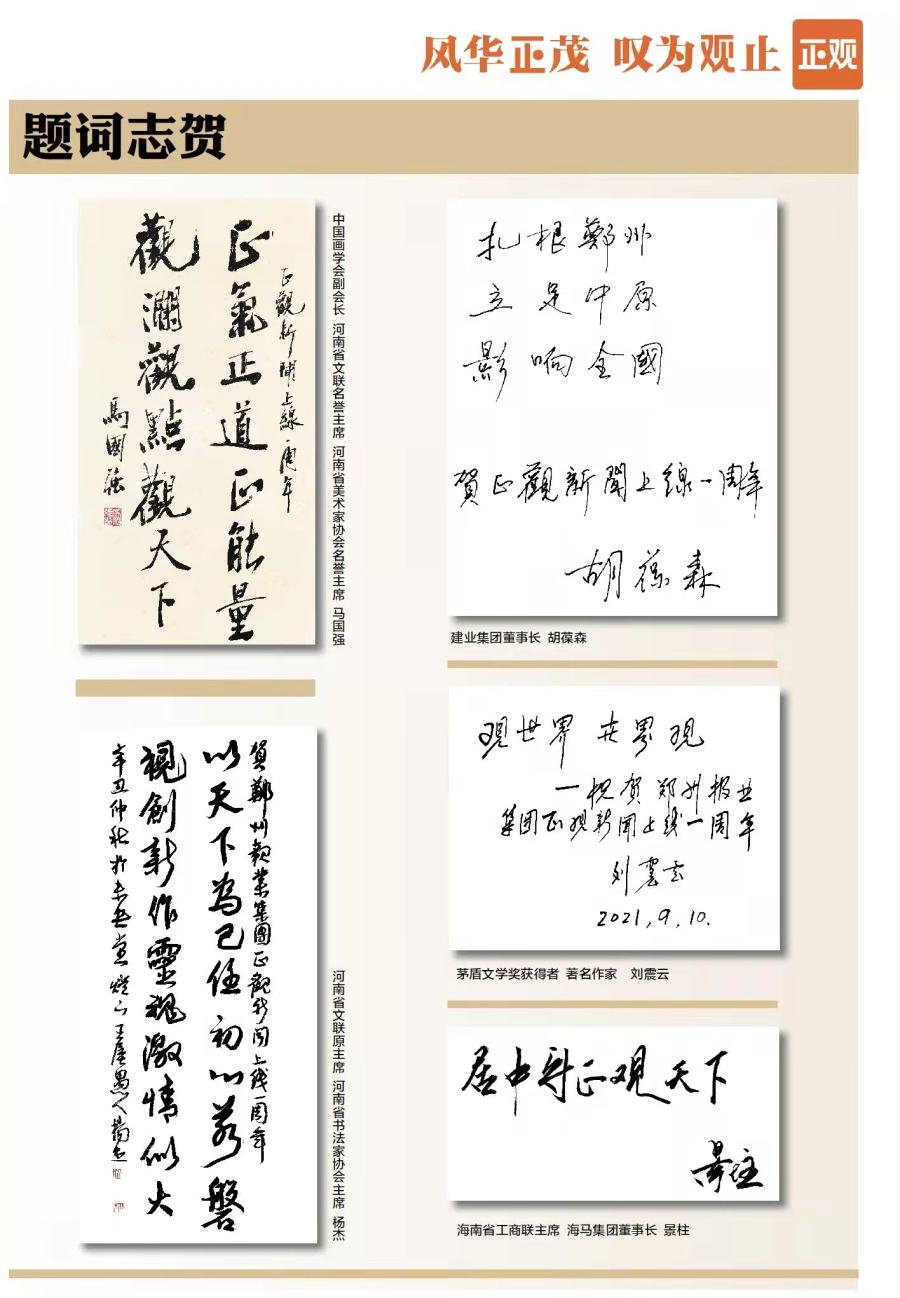 风华正茂 叹为观止 正观
题词志贺
正觀新聞上線一周年
正氣正道正能量
觀瀾觀點觀天下
馬國強
中国画学会副会长 河南省文联名誉主席 河南省美术家协会名誉主席 马国强
賀鄭州報業集團正觀新闻上线一周年
以天下為己任初心若磐
視創新作靈魂激情似火
辛丑仲秋於堂燈下王屋愚人楊杰
河南省文联原主席 河南省书法家协会主席 杨杰
扎根鄭州
立足中原
影响全國
賀正觀新聞上線一周年
胡葆森
建业集团董事长 胡葆森
观世界 世界观
—祝贺郑州报业
集团正观新闻上线一周年
刘震云
2021,9,10.
茅盾文学奖获得者 著名作家 刘震云
居中守正观天下
景柱
海南省工商联主席 海马集团董事长 景柱